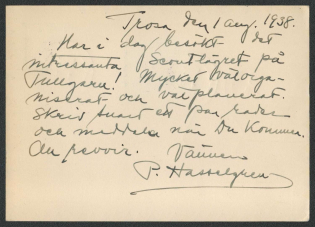 Trosa den 1 aug. 1938.
Har i dag besökt det
intressanta Scoutlägret på
Tullgarn! Mycket välorga-
niserat och välplanerat.
Skriv snart ett par rader
och meddela när Du kommer.
Au revoir. Vännen
P. Hasselgren